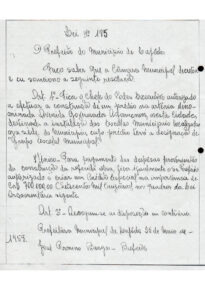 Lei nº 175
O Prefeito do Município de
Faço saber que a Câmara Municipal decreta
e eu sanciono a seguinte resolução
Art. 1º Fica o Chefe do Poder Executivo autorizado
a efetuar a construção de um prédio na
nesta cidade,
destinado a instalação das Escolas Municipais localizadas
na sede do Município, cujo prédio terá a designação de
Grupo Escolar Municipal
§ Único. Para pagamento das despesas provenientes
da construção da referida obra, fica igualmente o Sr. Prefeito
autorizado a abrir um Crédito Especial na importância de
Cr$ 300.000,00 (trezentos mil cruzeiros) no quadro da Lei
Orçamentária vigente
Art. 2º Revogam-se as disposições em contrário
Prefeitura Municipal de 28 de maio de
1957.
José Prefeito